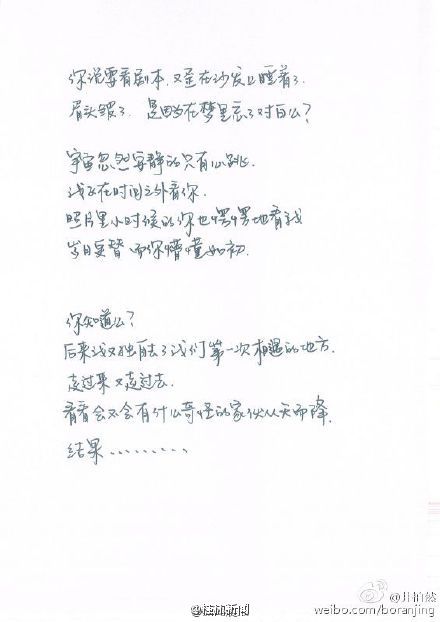 你说要看剧本.又歪在沙发上睡着了.
眉头皱了.是因为在梦里忘了对白么？
宇宙忽然安静的只有心跳.
我正在时间之外看你.
照片里小时候的你也愣愣地看我
岁月更替 而你懵懂如初.
你知道么？
后来我又独自去了我们第一次相遇的地方.
走过来又走过去.
看看会不会有什么奇怪的家伙从天而降.
结果..........
@桂加新闻
@井柏然
weibo.com/boranjing